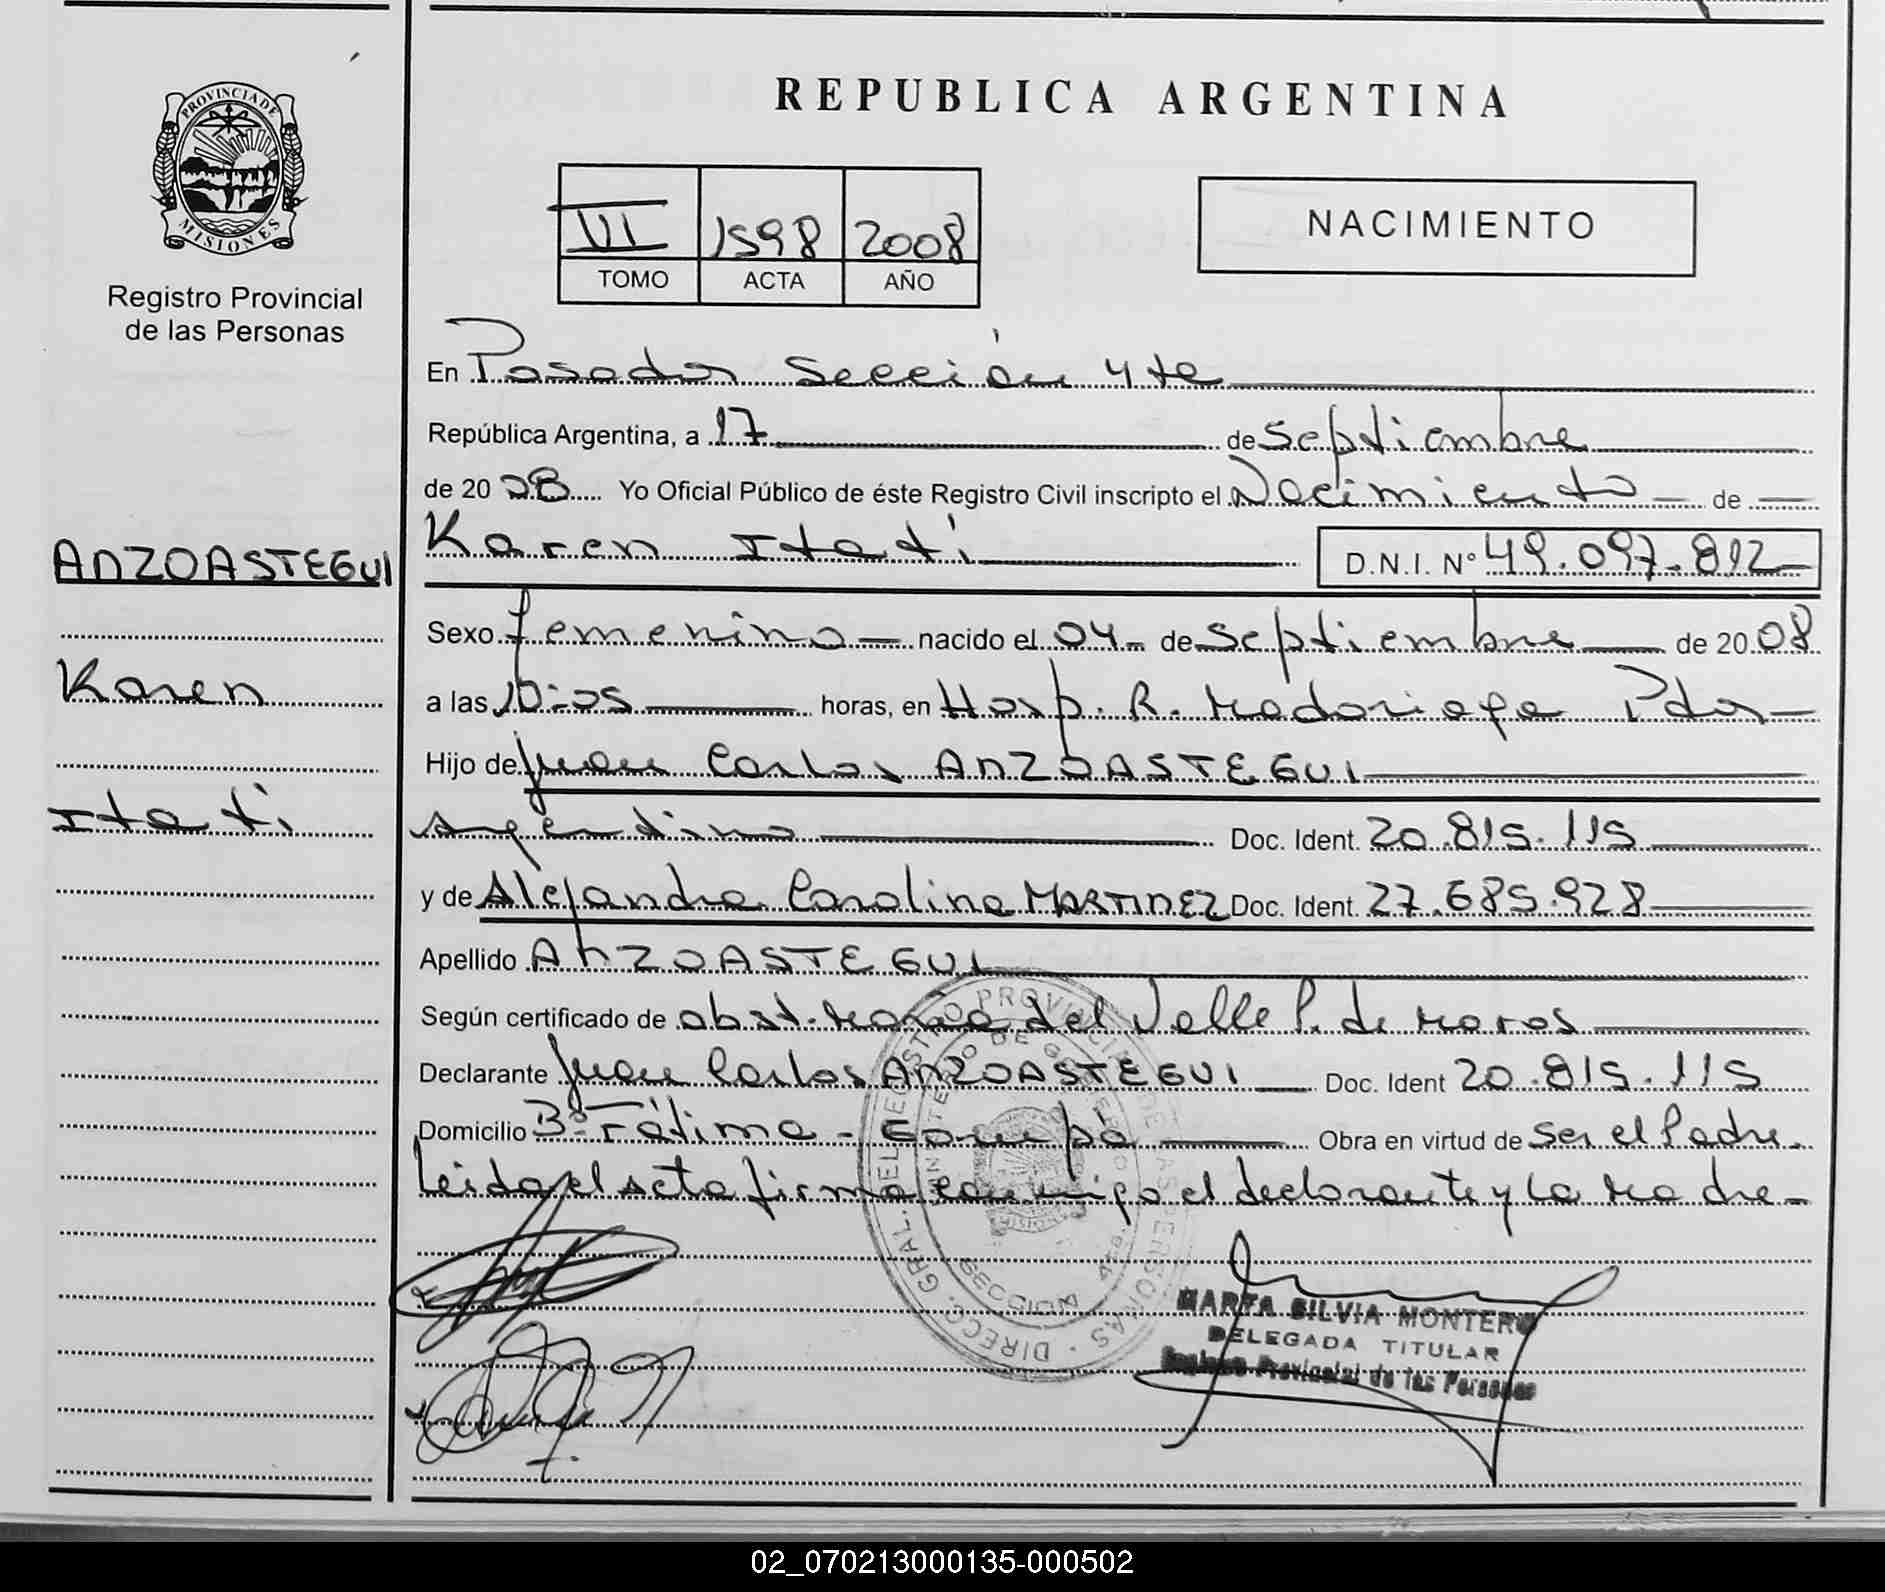 REPUBLICA ARGENTINA
PROVINCIA DE
MISIONES
Registro Provincial
de las Personas
VI 1598 2008
TOMO ACTA AÑO
NACIMIENTO
En Posadas Sección 4ta
República Argentina, a 17 de Septiembre
de 20 08 Yo Oficial Público de éste Registro Civil inscripto el Nacimiento de
Karen Itatí D.N.I. Nº 49.097.812
ANZOASTEGUI
Karen
Itatí
Sexo femenino nacido el 04 de Septiembre de 20 08
a las 10:05 horas, en Hosp. R. Madariaga Pdas
Hijo de Juan Carlos ANZOASTEGUI
Argentino Doc. Ident. 20.815.115
y de Alejandra Carolina MARTINEZ Doc. Ident. 27.685.928
Apellido ANZOASTEGUI
Según certificado de obst. María del Valle P. de Maros
Declarante Juan Carlos ANZOASTEGUI Doc. Ident 20.815.115
Domicilio Bº Fátima - Garupá Obra en virtud de Ser el Padre.
Leida el acta firma conmigo el declarante y la Madre
MARTA SILVIA MONTERO
DELEGADA TITULAR
Registro Provincial de las Personas
02_070213000135-000502